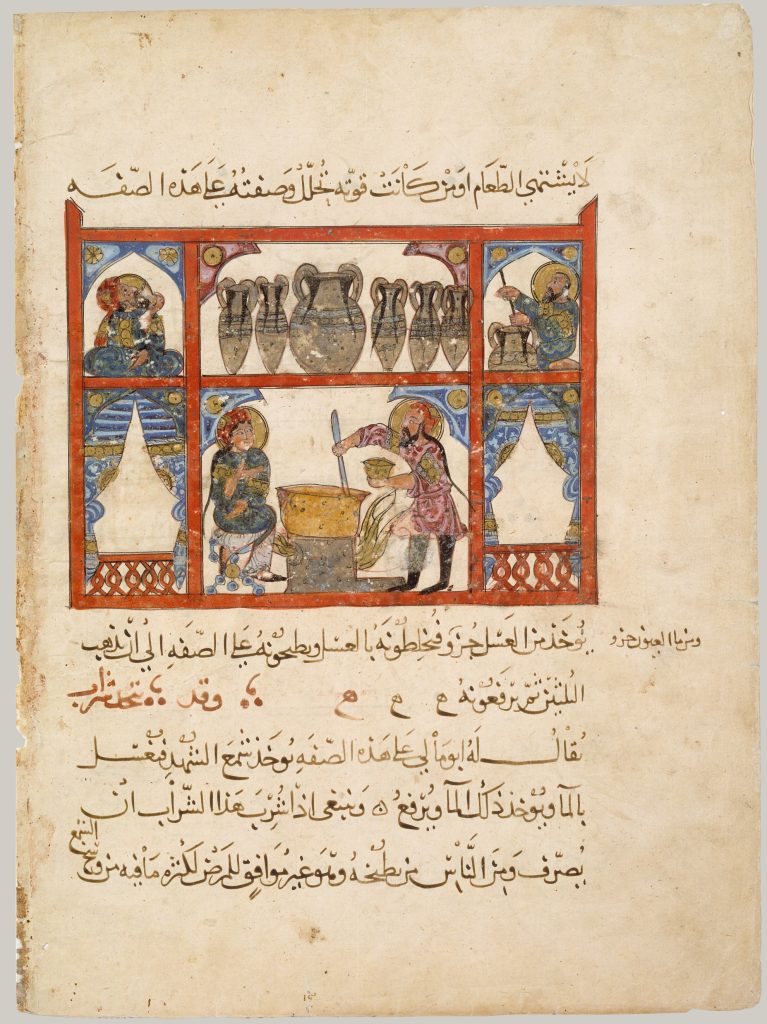 لَا يشْتهي الطّعَام اوَمَنْ كَانَتْ قوّته تحَلّلُ وَصفتُهُ عَلَى هَذه الصّفَه
يُوخَذ من العَسَل جُزوَ فُيخلِطُونَهُ بالعسَل ويطبخونهُ عَلَى الصّفَهِ الي أنْ يذهب
ومن ماا العيون جزو
الثلثيْن ثمّ يَرفعُونهُ ه ه ه وقد يتخذ شراب
يُقالُ لَهُ ابومَالي عَلَى هَذه الصّفَهِ يُوخَذ شمَع الشّهْدِ فيغْسَل
بالمآ ويُوْخذ ذَلك المآ ويُرْفعُ ه وَينبغى اذَا شُرِبَ هَذا الشّرَاب انْ
يُصرّف وَمِنَ النَّاسْ من يطبُخهُ وهُوَ غير مُوَافِق للمَرضْ لكثرَه مَا فيه من وسخ
الشمع